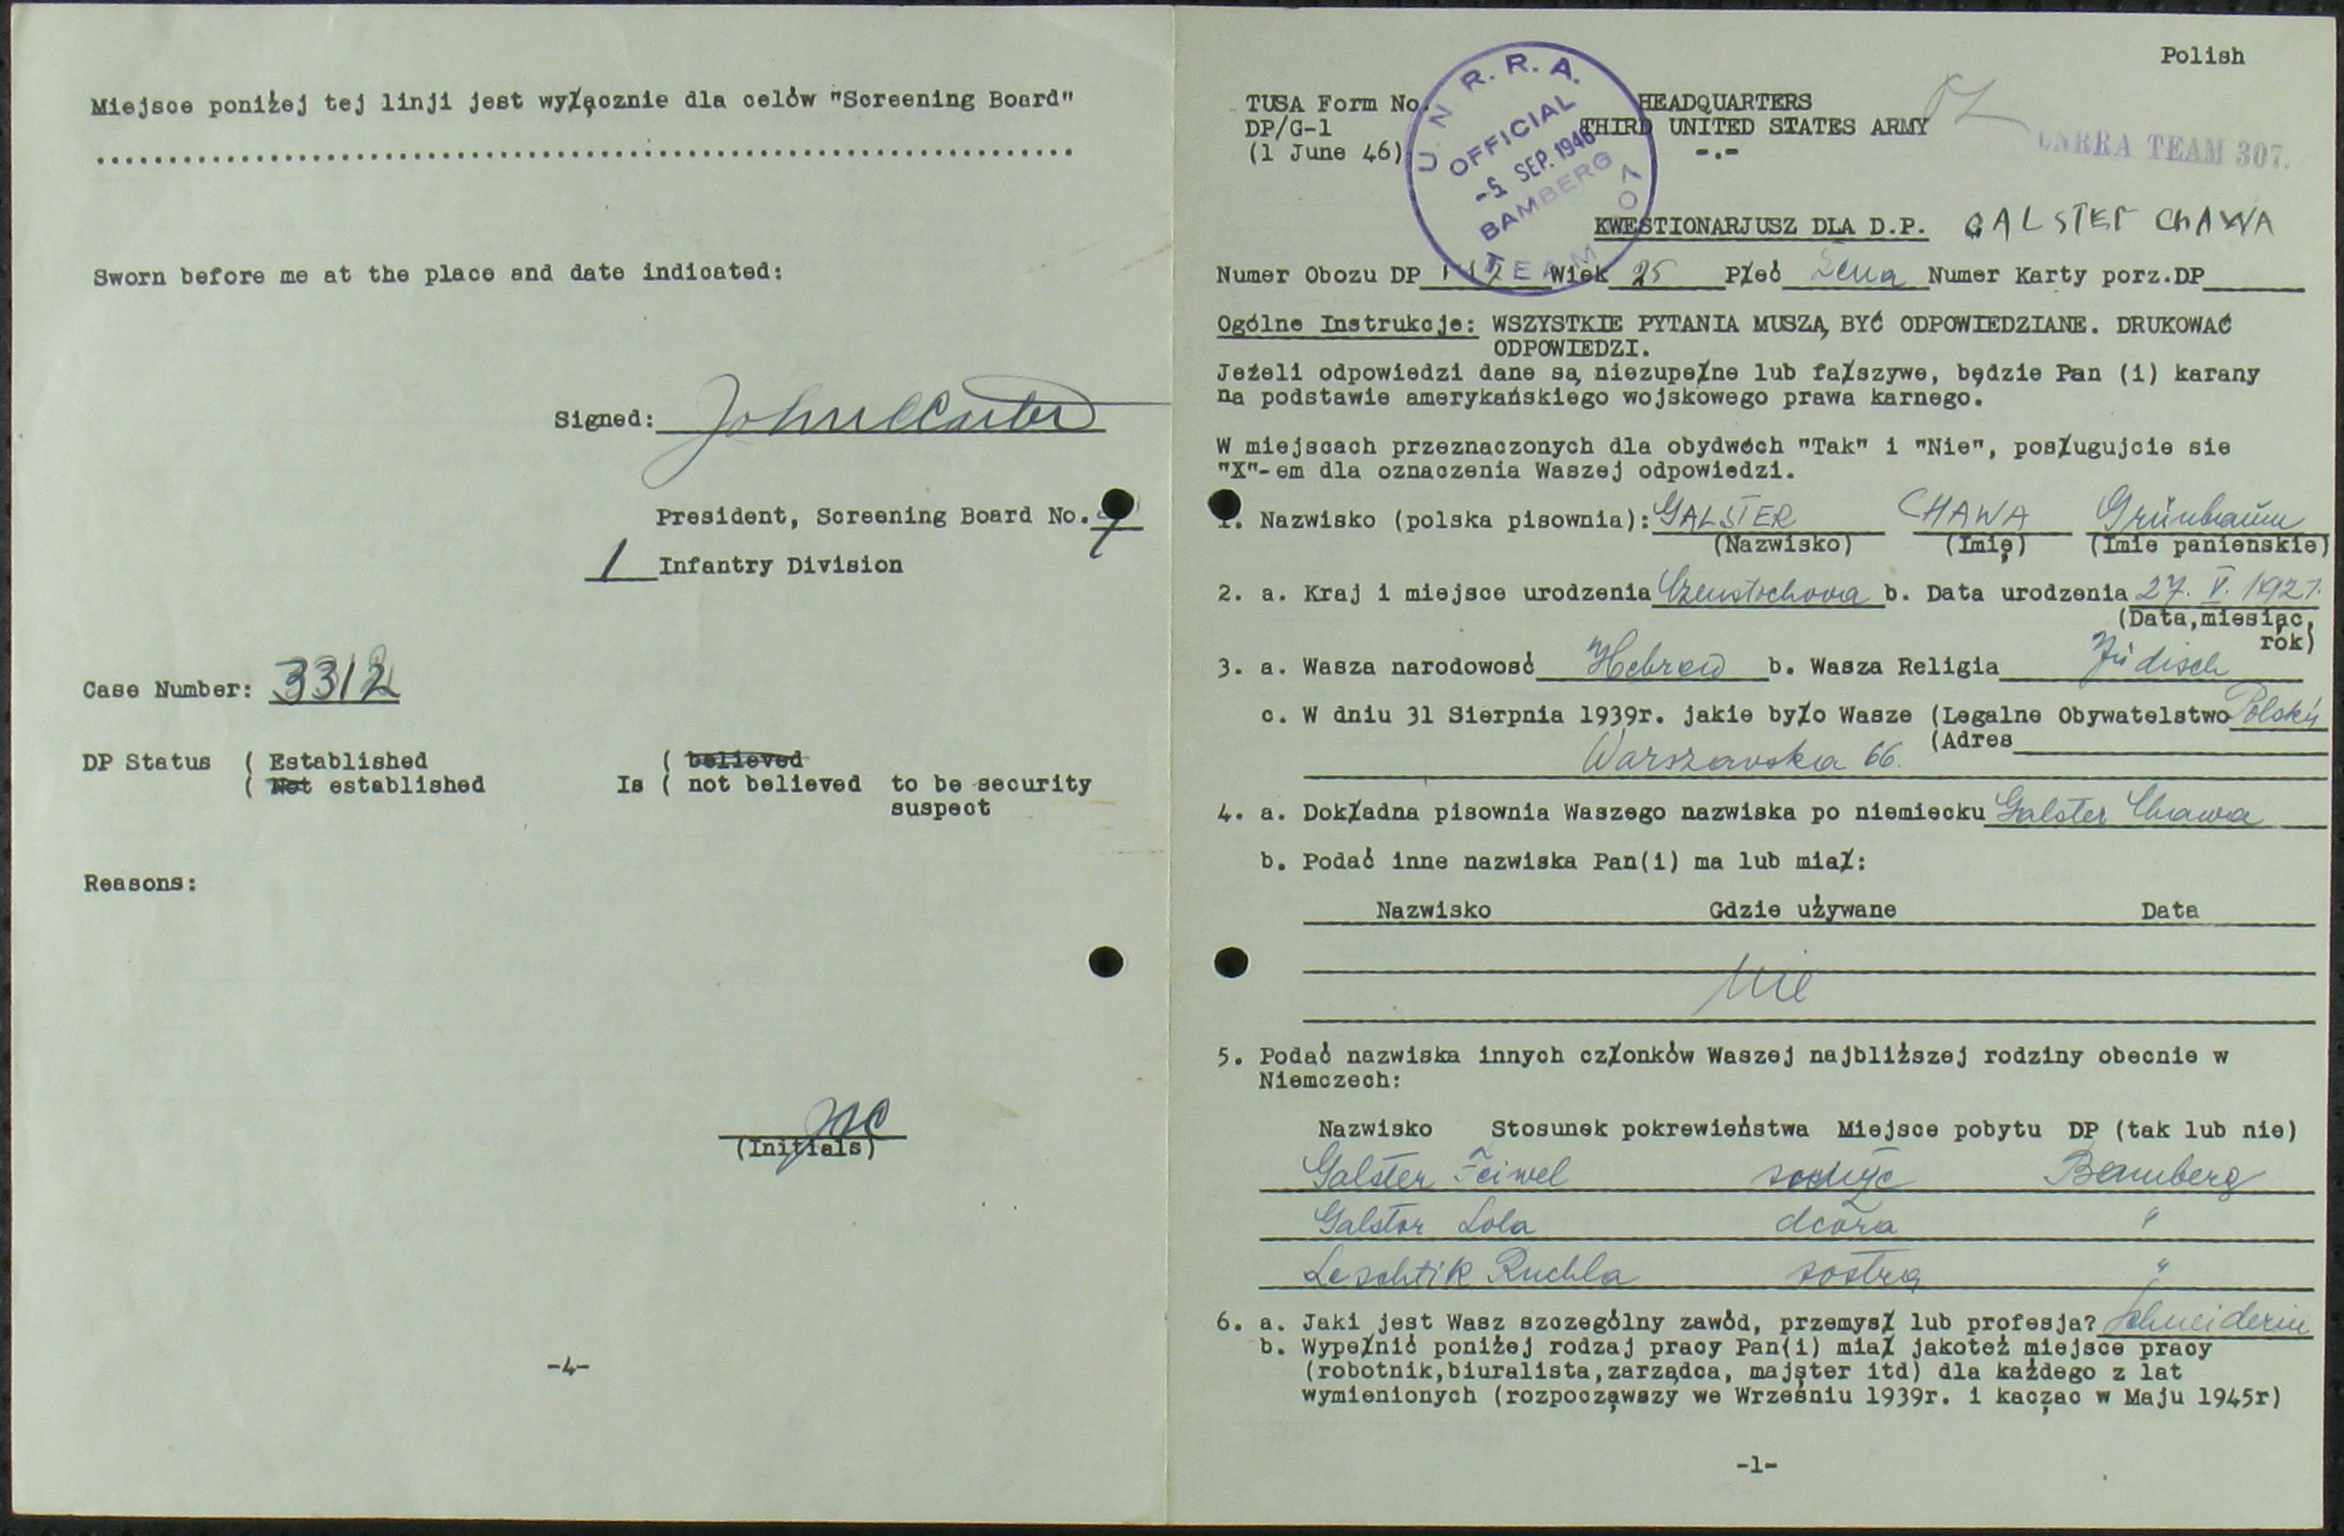 Miejsce poniżej tej linji jest wyłącznie dla celów "Screening Board"
Sworn before me at the place and date indicated:
Signed:
President, Screening Board No.
1 Infantry Division
Case Number: 3312
DP Status ( Established
( Not established
Is ( believed
( not believed to be security
suspect
Reasons:
(Initials)
-4-
Polish
TUSA Form No.
DP/G-1
(1 June 46)
HEADQUARTERS
THIRD UNITED STATES ARMY
-.-
U.N.R.R.A.
OFFICIAL
-5 SEP. 1946
BAMBERG
TEAM 307
UNRRA TEAM 307.
KWESTIONARJUSZ DLA D.P. GALSTER CHAWA
Numer Obozu DP Wiek 25 Płeć Żena Numer Karty porz.DP
Ogólne Instrukcje: WSZYSTKIE PYTANIA MUSZĄ BYĆ ODPOWIEDZIANE. DRUKOWAĆ
ODPOWIEDZI.
Jeżeli odpowiedzi dane są niezupełne lub fałszywe, będzie Pan (i) karany
na podstawie amerykańskiego wojskowego prawa karnego.
W miejscach przeznaczonych dla obydwóch "Tak" i "Nie", posługujcie sie
"X"-em dla oznaczenia Waszej odpowiedzi.
1. Nazwisko (polska pisownia): GALSTER CHAWA Grünbaum
(Nazwisko) (Imię) (Imie panienskie)
2. a. Kraj i miejsce urodzenia Czenstochova b. Data urodzenia 27. V. 1921.
(Data,miesiąc,
rók)
3. a. Wasza narodowość Hebrew b. Wasza Religia Jüdisch
c. W dniu 31 Sierpnia 1939r. jakie było Wasze (Legalne Obywatelstwo Polský
(Adres
Warszavska 66.
4. a. Dokładna pisownia Waszego nazwiska po niemiecku Galster Chawa
b. Podać inne nazwiska Pan(i) ma lub miał:
Nazwisko Gdzie używane Data
Nie
5. Podać nazwiska innych członków Waszej najbliższej rodziny obecnie w
Niemczech:
Nazwisko Stosunek pokrewieństwa Miejsce pobytu DP (tak lub nie)
Galster Feiwel Bamberg
Galster Lola dcora "
Leschtik Ruchla sostra "
6. a. Jaki jest Wasz szczególny zawód, przemysł lub profesja? Schneiderin
b. Wypełnić poniżej rodzaj pracy Pan(i) miał jakoteż miejsce pracy
(robotnik,biuralista,zarządca, majster itd) dla każdego z lat
wymienionych (rozpocząwszy we Wrześniu 1939r. i kacząc w Maju 1945r)
-1-